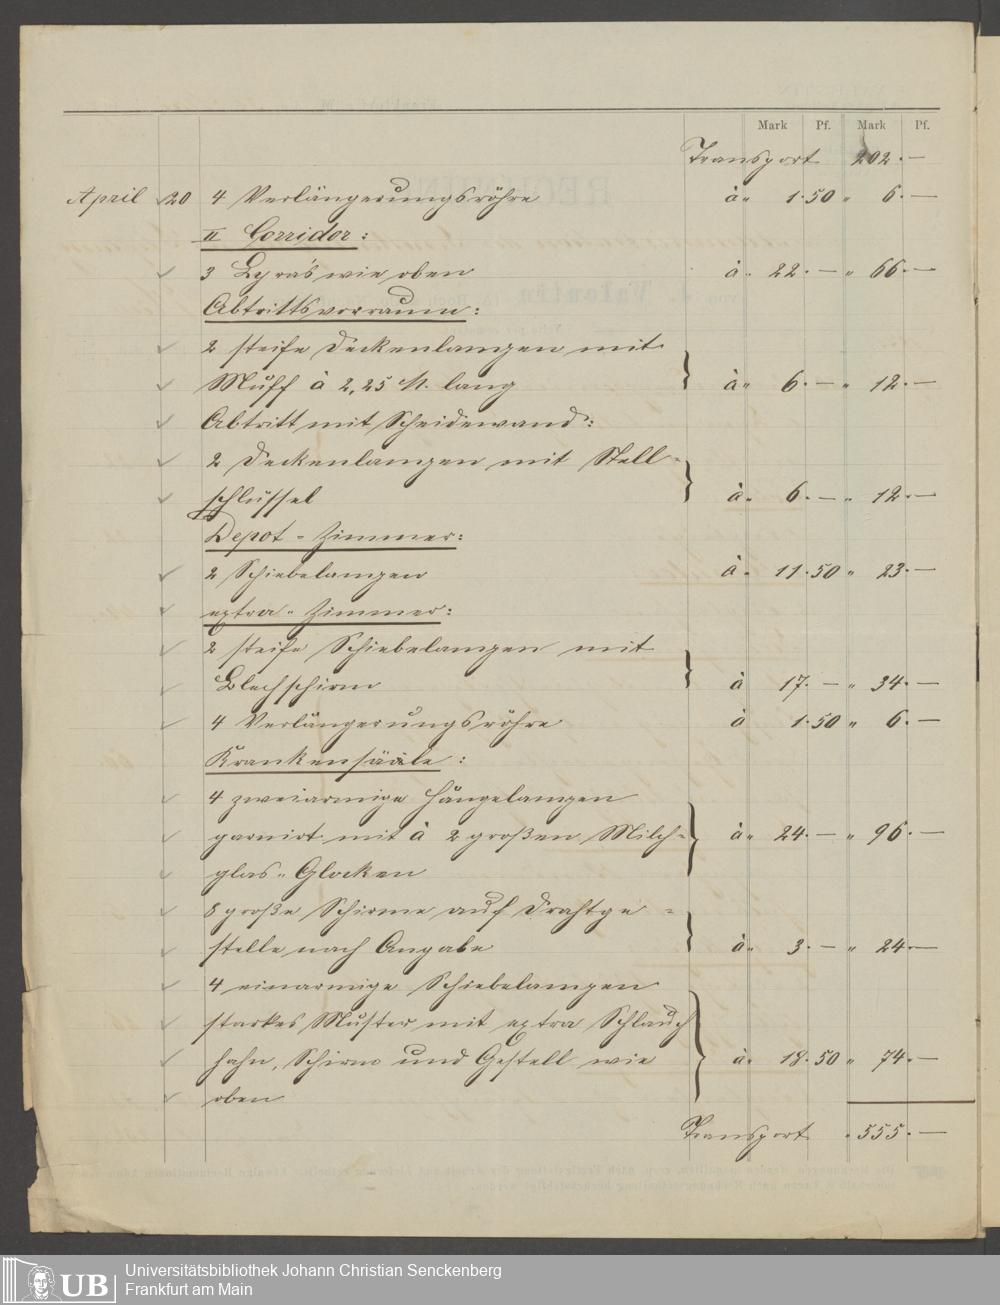 Mark Pf. Mark Pf.
Transport 202.—
April 20 4 Verlängerungsröhre à „ 1.50 „ 6.—
II Corridor:
3 Lyra's wie oben à „ 22.— „ 66.—
Abtrittsvorraum:
2 steife Deckenlampen mit
Muff à 2,25 M. lang à „ 6.— „ 12.—
Abtritt mit Scheidewand:
2 Deckenlampen mit Stell-
schlüssel à „ 6.— „ 12.—
Depot-Zimmer:
2 Schiebelampen à „ 11.50 „ 23.—
extra-Zimmer:
2 steife Schiebelampen mit
Blechschirm à 17.— „ 34.—
4 Verlängerungsröhre à 1.50 „ 6.—
Krankensääle:
4 zweiarmige Hängelampen
garnirt mit à 2 großen Milch- à „ 24.— „ 96.—
glas-Glocken
8 große Schirme auf Drahtge-
stelle nach Angabe à „ 3.— „ 24.—
4 einarmige Schiebelampen
starkes Muster mit extra Schlauch
hahn, Schirm und Gestell wie à „ 18.50 „ 74.—
oben
Transport „ 555.—
UB Universitätsbibliothek Johann Christian Senckenberg
Frankfurt am Main